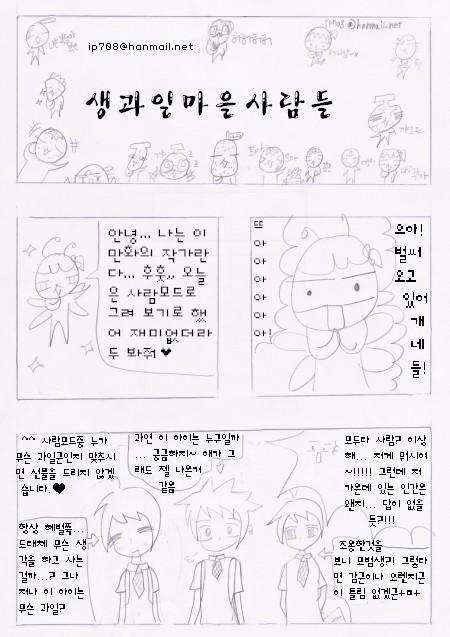 ip708@hanmail.net
ip708@hanmail.net
생과일마을사람들
안녕... 나는 이
만화의 작가란
다... 후훗,, 오늘
은 사람모드로
그려 보기로 했
어 재미없더라
두 봐줘 ♥
뜨
아
아
아
아
아!
오아!
벌써
오고
있어
걔
네
들!
^^ 사람모드중 누가
무슨 과일군인지 맞추시
면 선물을 드리지 않겠
습니다.♥
항상 헤벌쭉...
도대체 무슨 생
각을 하고 사는
걸까...? 그나
저나 이 아이는
무슨 과일?
과연 이 아이는 누구일까
... 궁금하지~ 얘가 그
래도 젤 나은거
같음
모두다 사람? 이상
해... 저게 뭐시여
~!!!!! 그런데 저
가운데 있는 인간은
왜지... 답이 없을
듯?!!!
조용한것을
보니 모범생?! 그렇다
면 감군이나 오렌지군
이 틀림 없겠군+ㅁ+